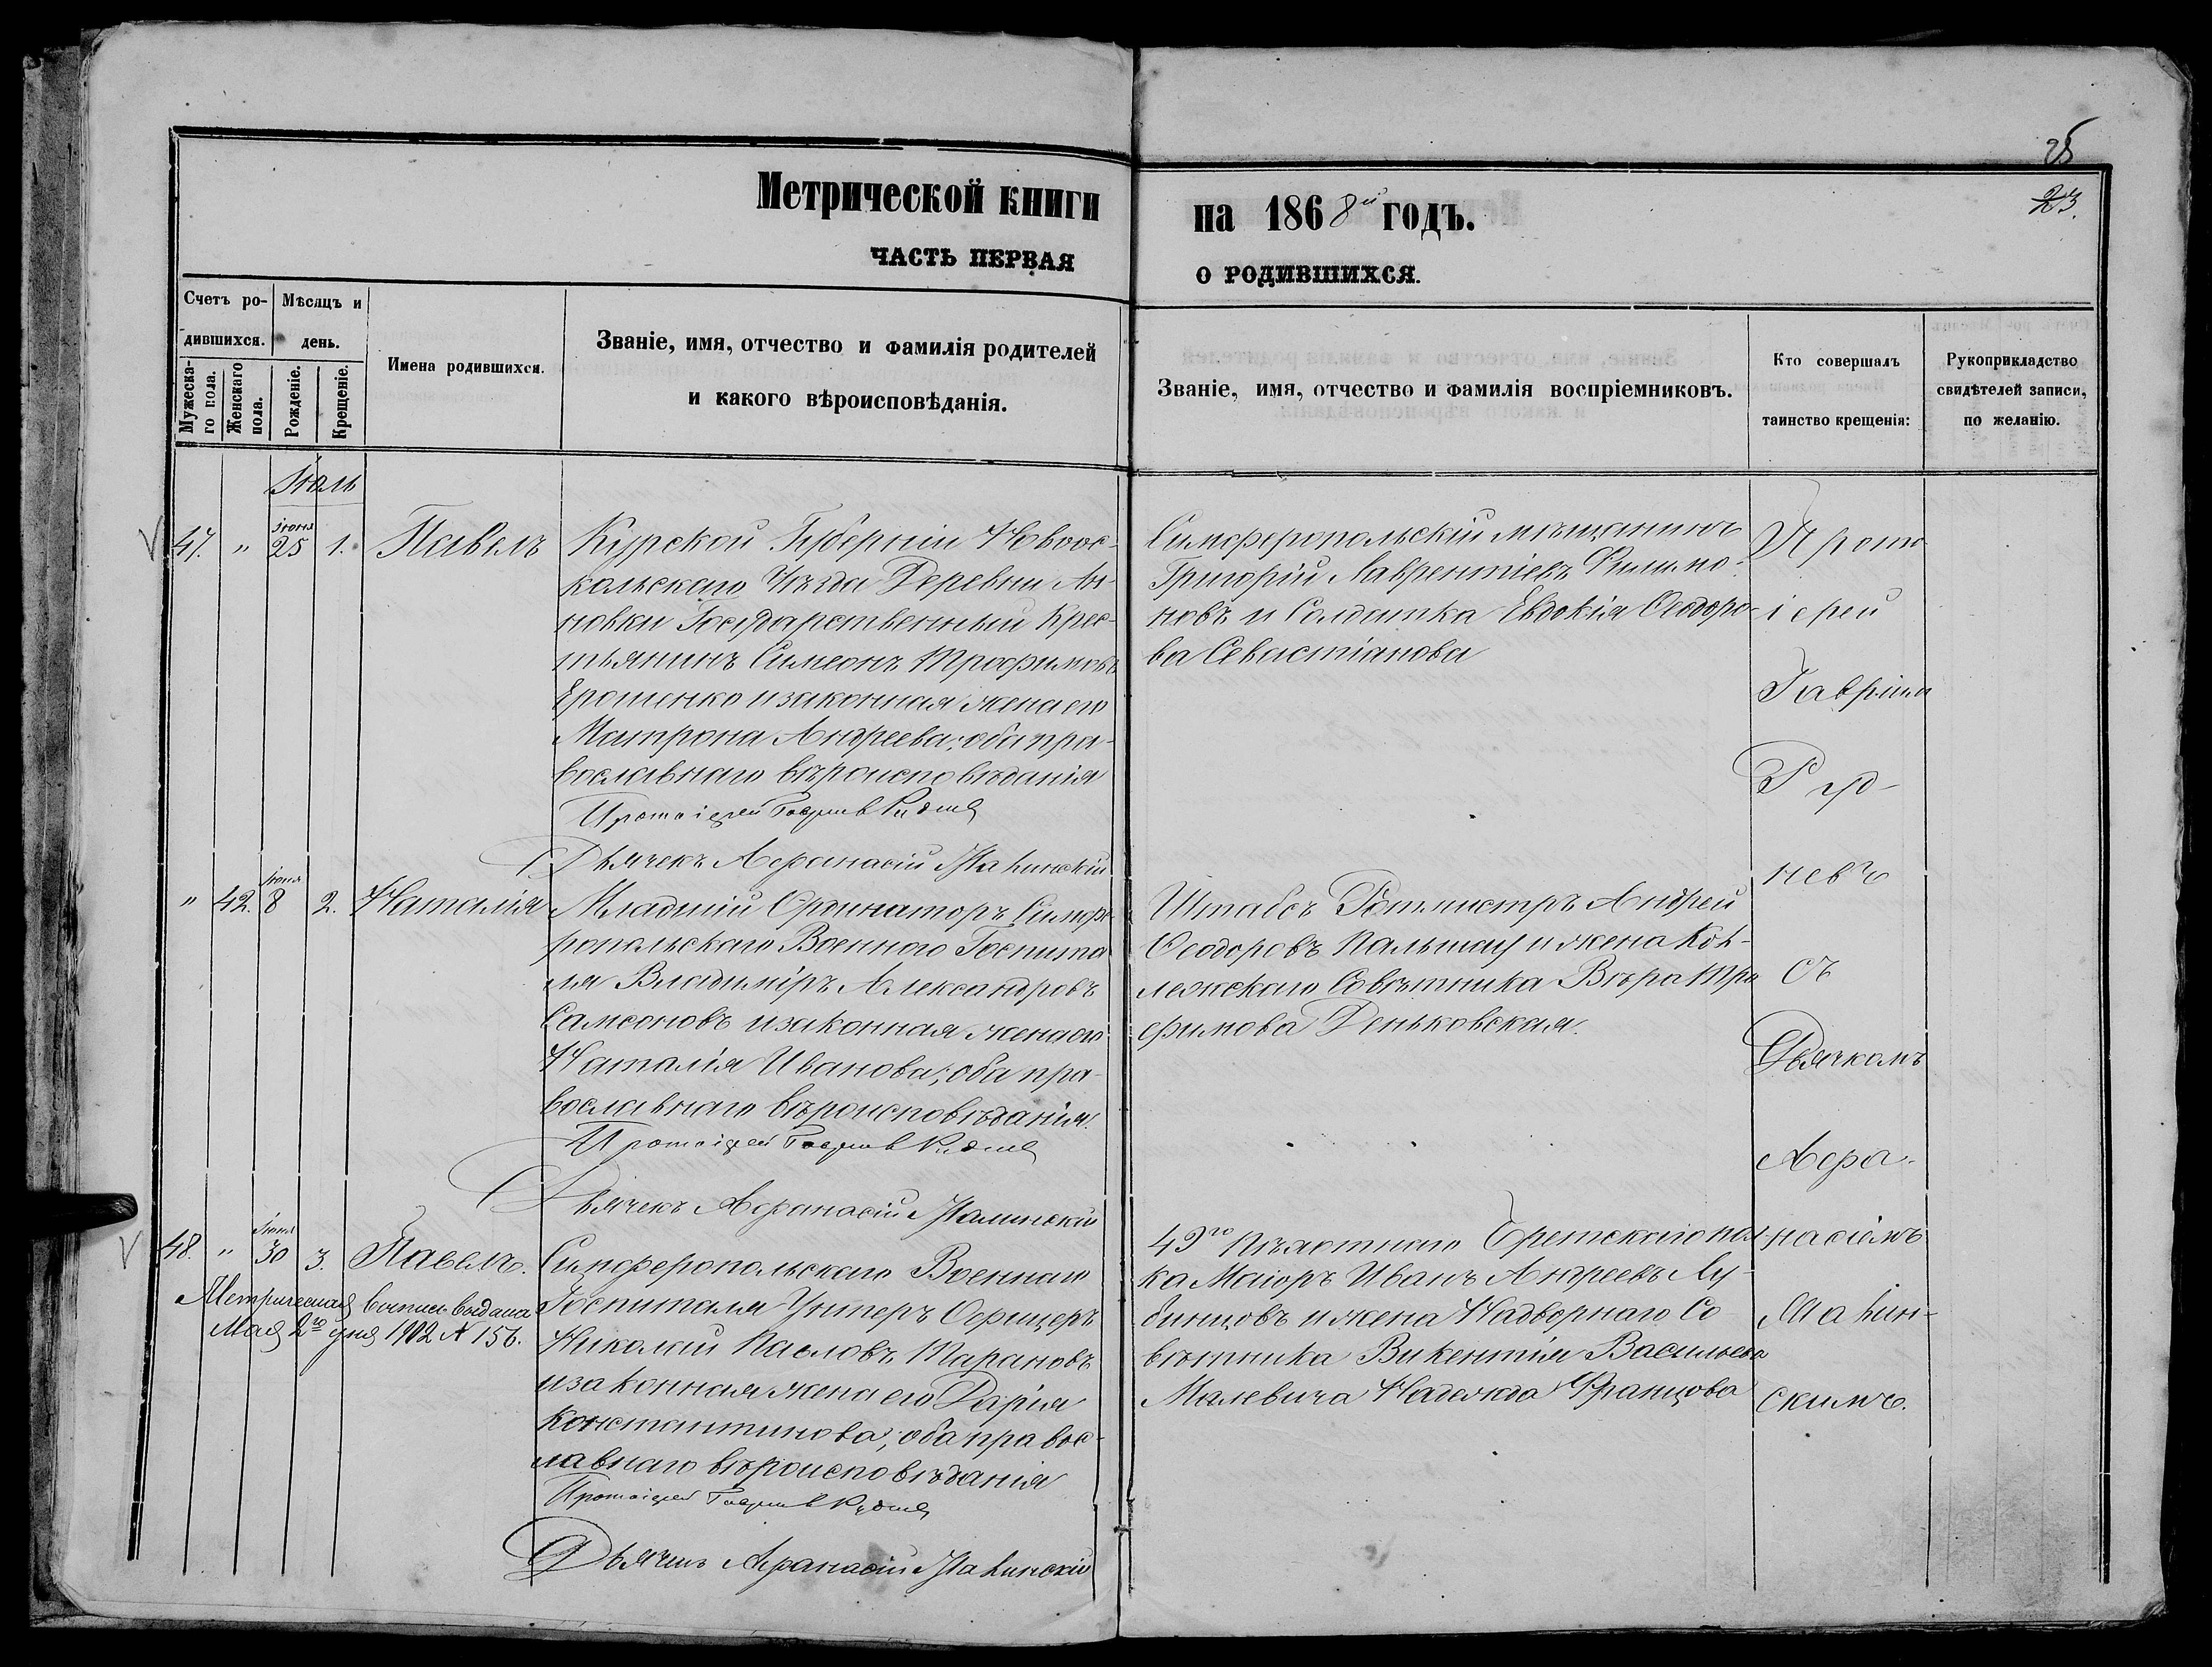 25
23.
Метрической книги
на 1868й годъ.
ЧАСТЬ ПЕРВАЯ
О РОДИВШИХСЯ.
Счетъ ро-
дившихся.
Мѣсяцъ и
день.
Мужеска-
го пола.
Женскаго
пола.
Рожденіе.
Крещеніе.
Имена родившихся.
Званіе, имя, отчество и фамилія родителей
и какого вѣроисповѣданія.
Званіе, имя, отчество и фамилія воспріемниковъ.
Кто совершалъ
таинство крещенія:
Рукоприкладство
свидѣтелей записи,
по желанію.
Іюль
47. " Іюня 25 1. Павелъ
Курской Губерніи Новоос-
кольскаго Уѣзда Деревни
новки Государственный Крес-
тьянинъ Симеонъ Трофимовъ
Ерошенко и законная жена его
Матрона Андреева; оба пра-
вославнаго вѣроисповѣданія
Протоіерей Гавріилъ Рудневъ
Дьячекъ Афанасій Малинскій
Симферопольскій мѣщанинъ
Григорій Лаврентіевъ Филимо-
новъ и Солдатка Евдокія Ѳеодоро-
ва Севастіанова
" 42. Іюня 8 2. Наталія
Младшій Ординаторъ Симфе-
ропольскаго Военнаго Госпита
ля Владиміръ Александровъ
Самсоновъ и законная жена его
Наталія Иванова; оба пра-
вославнаго вѣроисповѣданія.
Протоіерей Гавріилъ Рудневъ
Дьячекъ Афанасій Малинскій
Штабсъ Ротмистръ Андрей
Ѳеодоровъ Пальшау и жена Кол-
лежскаго Совѣтника Вѣра Тро
фимова Деньковская.
48. " Іюня 30 3. Павелъ.
Метрическая выпись выдана
Мая 2го дня 1902 № 156.
Симферопольскаго Военнаго
Госпиталя Унтеръ Офицеръ
Николай Павловъ Тарановъ
и законная жена его Дарія
Константинова; оба правос-
лавнаго вѣроисповѣданія
Протоіерей Гавріилъ Рудневъ
Дьячекъ Афанасій Малинскій
49го Пѣхотнаго Бретскаго пол-
ка Маіоръ Иванъ Андреевъ Лу-
бинцовъ и жена Надворнаго Со-
вѣтника Викентія Васильева
Малевича Надежда Францова
Прото-
іерей
Гавріилъ
Руд-
невъ
съ
Дьячкомъ
Афа-
насіемъ
Малин-
скимъ.